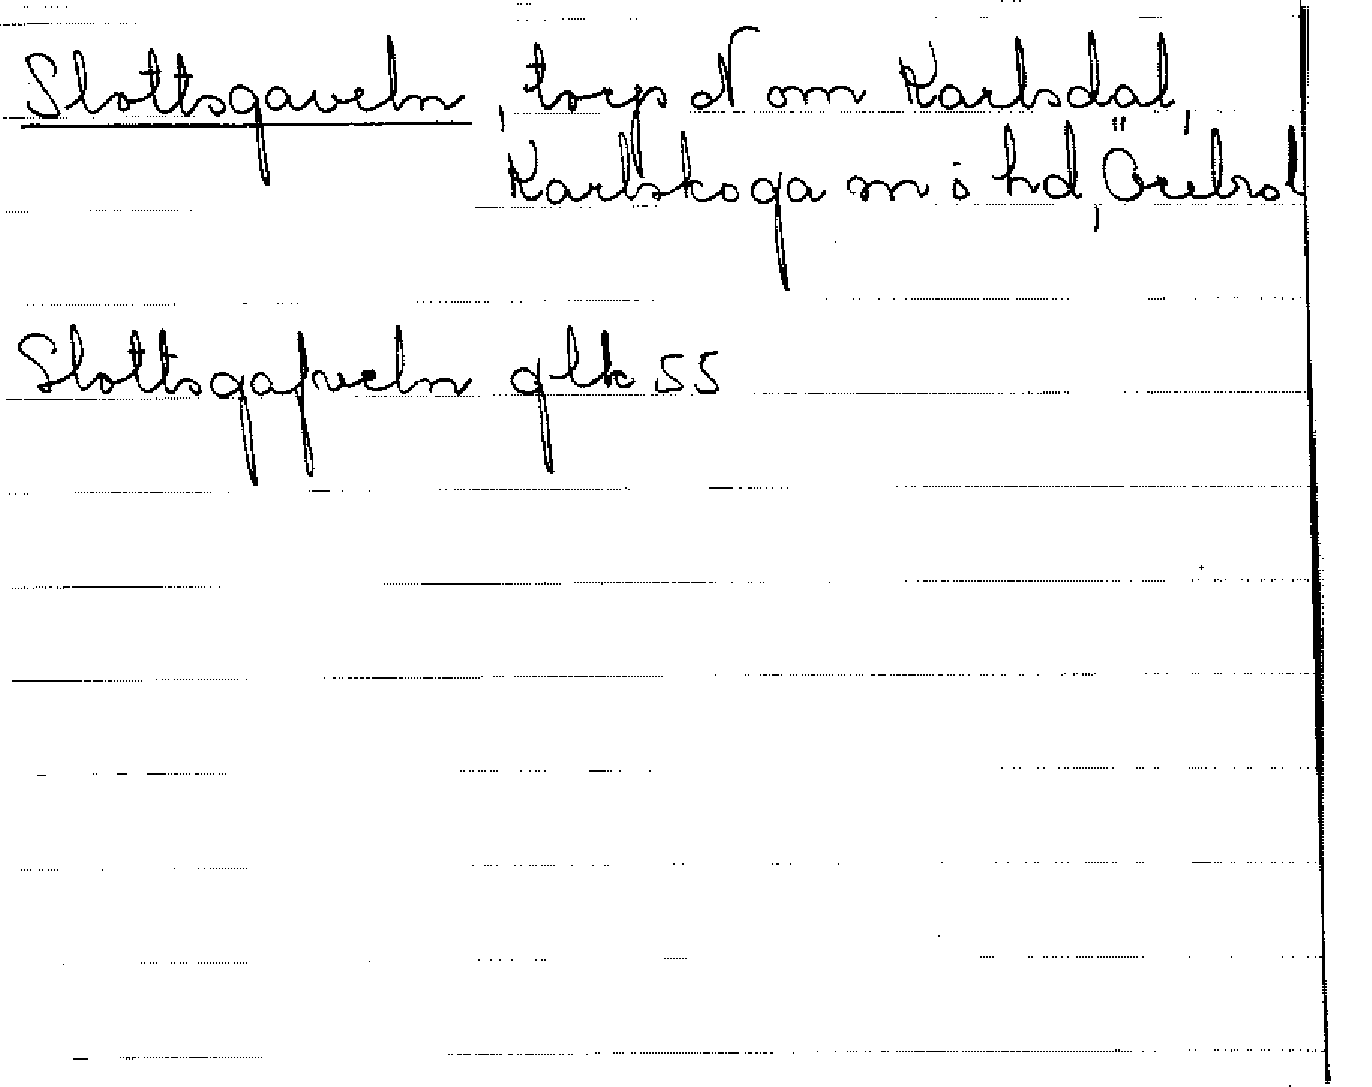 Slottsgaveln, torp N om Karlsdal,
Karlskoga sn o hd, Örebro l
Slottsgafveln glk 55